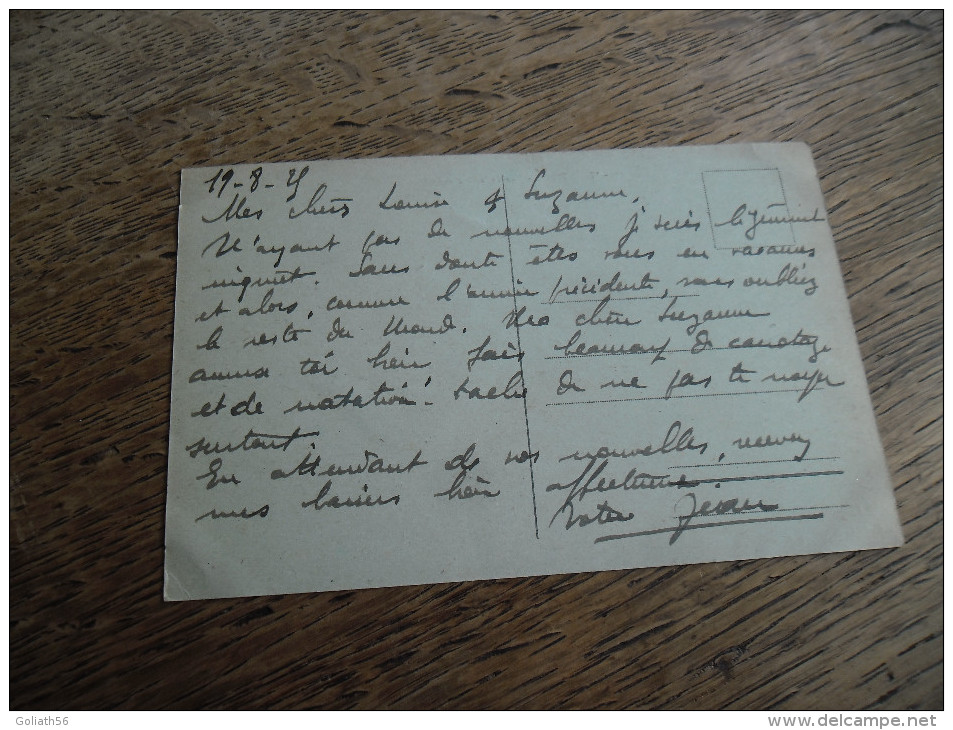 19-8-25
Mes chers Louise & Suzanne,
N'ayant pas de nouvelles je suis légèrement
inquiet. Sans doute êtes vous en vacances
et alors, comme l'année précédente, vous oubliez
le reste du Monde. Ma chère Suzanne
amuse toi bien fais beaucoup de canotage
et de natation. tache de ne pas te noyer
surtout.
En attendant de vos nouvelles, recevez
mes baisers bien affectueux.
Votre
Goliath56
www.delcampe.net